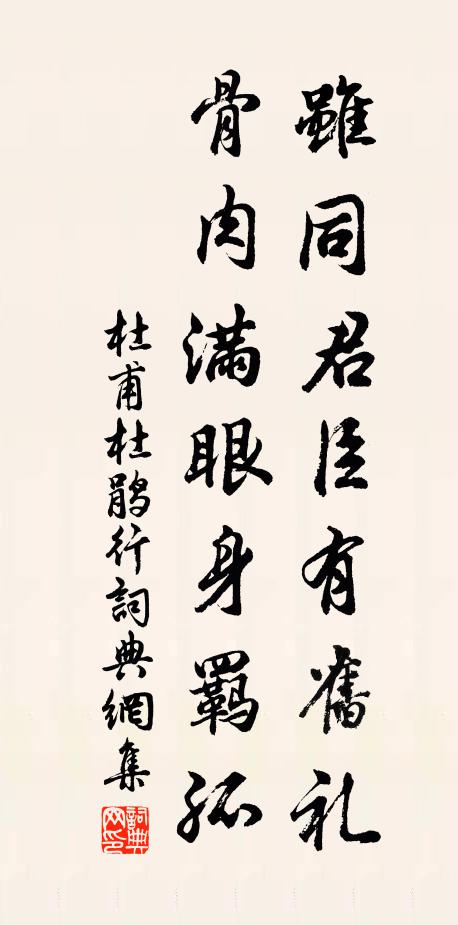 雖同君臣有舊礼
骨肉滿眼身羈孤
杜甫杜鵑行詞典網集
詞典網印